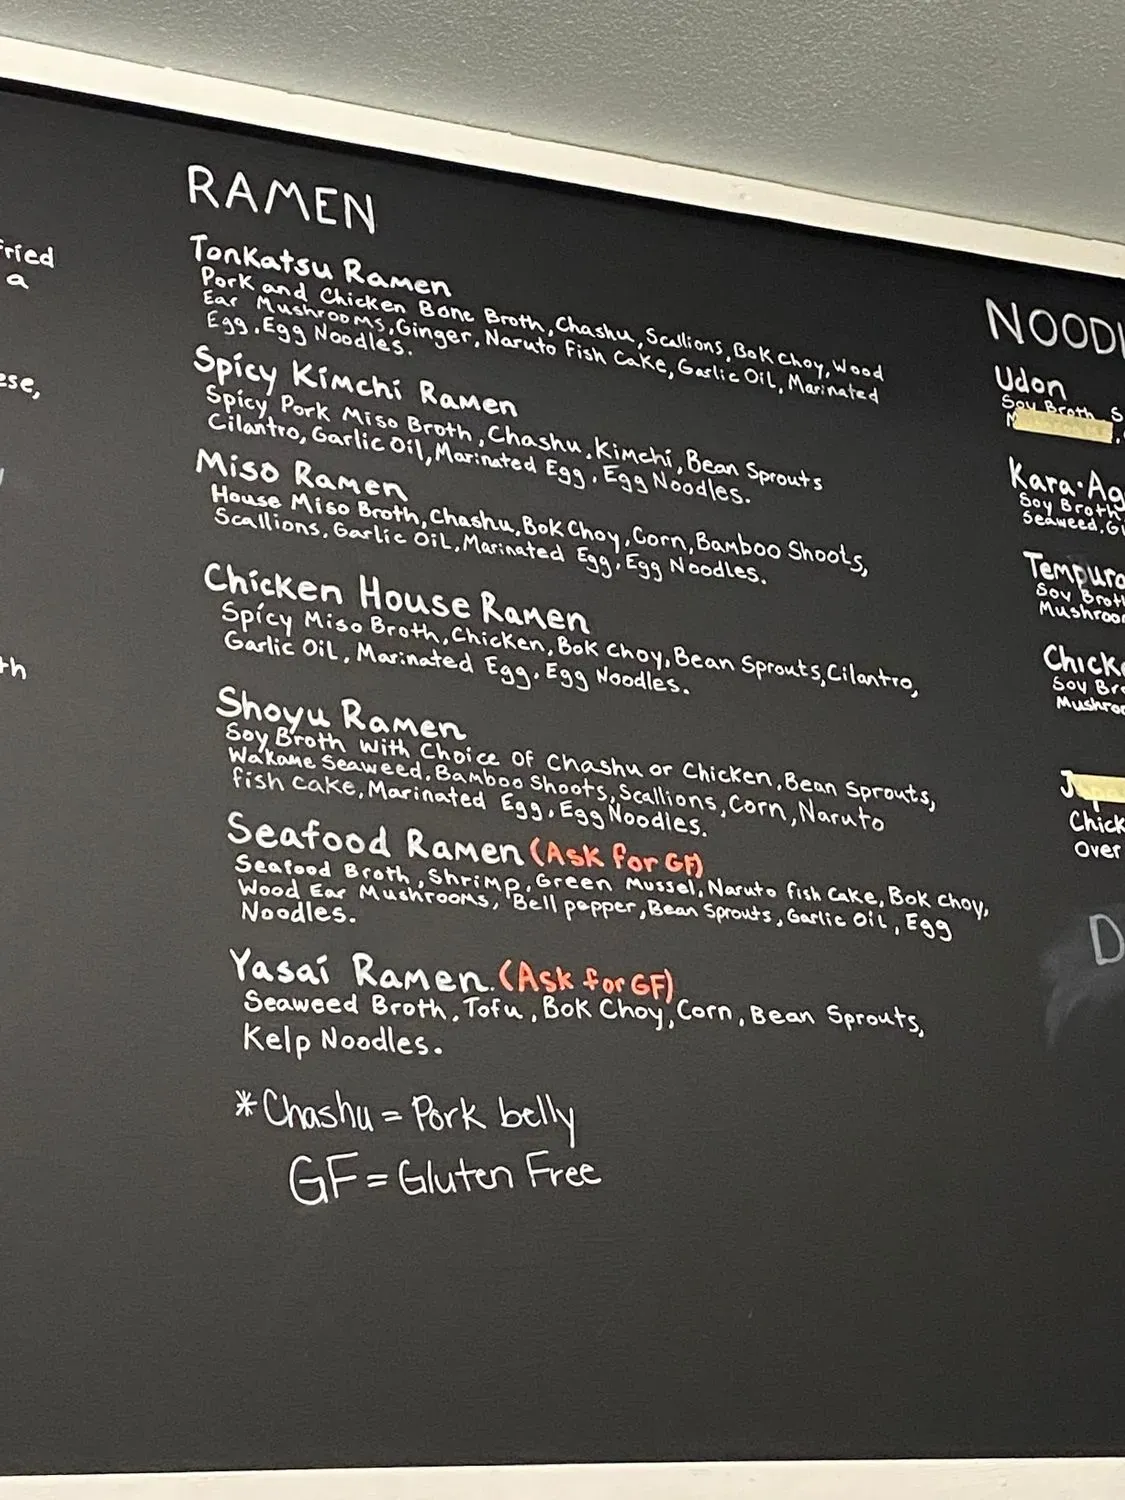 fried
a
ese,
th
RAMEN
Tonkatsu Ramen
Pork and Chicken Bone Broth, Chashu, Scallions, Bok Choy, Wood
Ear Mushrooms, Ginger, Naruto Fish Cake, Garlic Oil, Marinated
Egg, Egg Noodles.
Spicy Kimchi Ramen
Spicy Pork Miso Broth, Chashu, Kimchi, Bean Sprouts
Cilantro, Garlic Oil, Marinated Egg, Egg Noodles.
Miso Ramen
House Miso Broth, Chashu, Bok Choy, Corn, Bamboo Shoots,
Scallions, Garlic Oil, Marinated Egg, Egg Noodles.
Chicken House Ramen
Spicy Miso Broth, Chicken, Bok Choy, Bean Sprouts, Cilantro,
Garlic Oil, Marinated Egg, Egg Noodles.
Shoyu Ramen
Soy Broth with Choice of Chashu or Chicken, Bean Sprouts,
Wakame Seaweed, Bamboo Shoots, Scallions, Corn, Naruto
fish cake, Marinated Egg, Egg Noodles.
Seafood Ramen (Ask for GF)
Seafood Broth, Shrimp, Green Mussel, Naruto fish cake, Bok Choy,
Wood Ear Mushrooms, Bell pepper, Bean Sprouts, Garlic Oil, Egg
Noodles.
Yasai Ramen. (Ask for GF)
Seaweed Broth, Tofu, Bok Choy, Corn, Bean Sprouts,
Kelp Noodles.
*Chashu = Pork belly
GF = Gluten Free
NOOD
Udon
Soy Broth S
Kara-Ag
Soy Broth
Seaweed, G
Tempura
Soy Brot
Mushroo
Chick
Soy Br
Mushro
J
Chick
Over
D